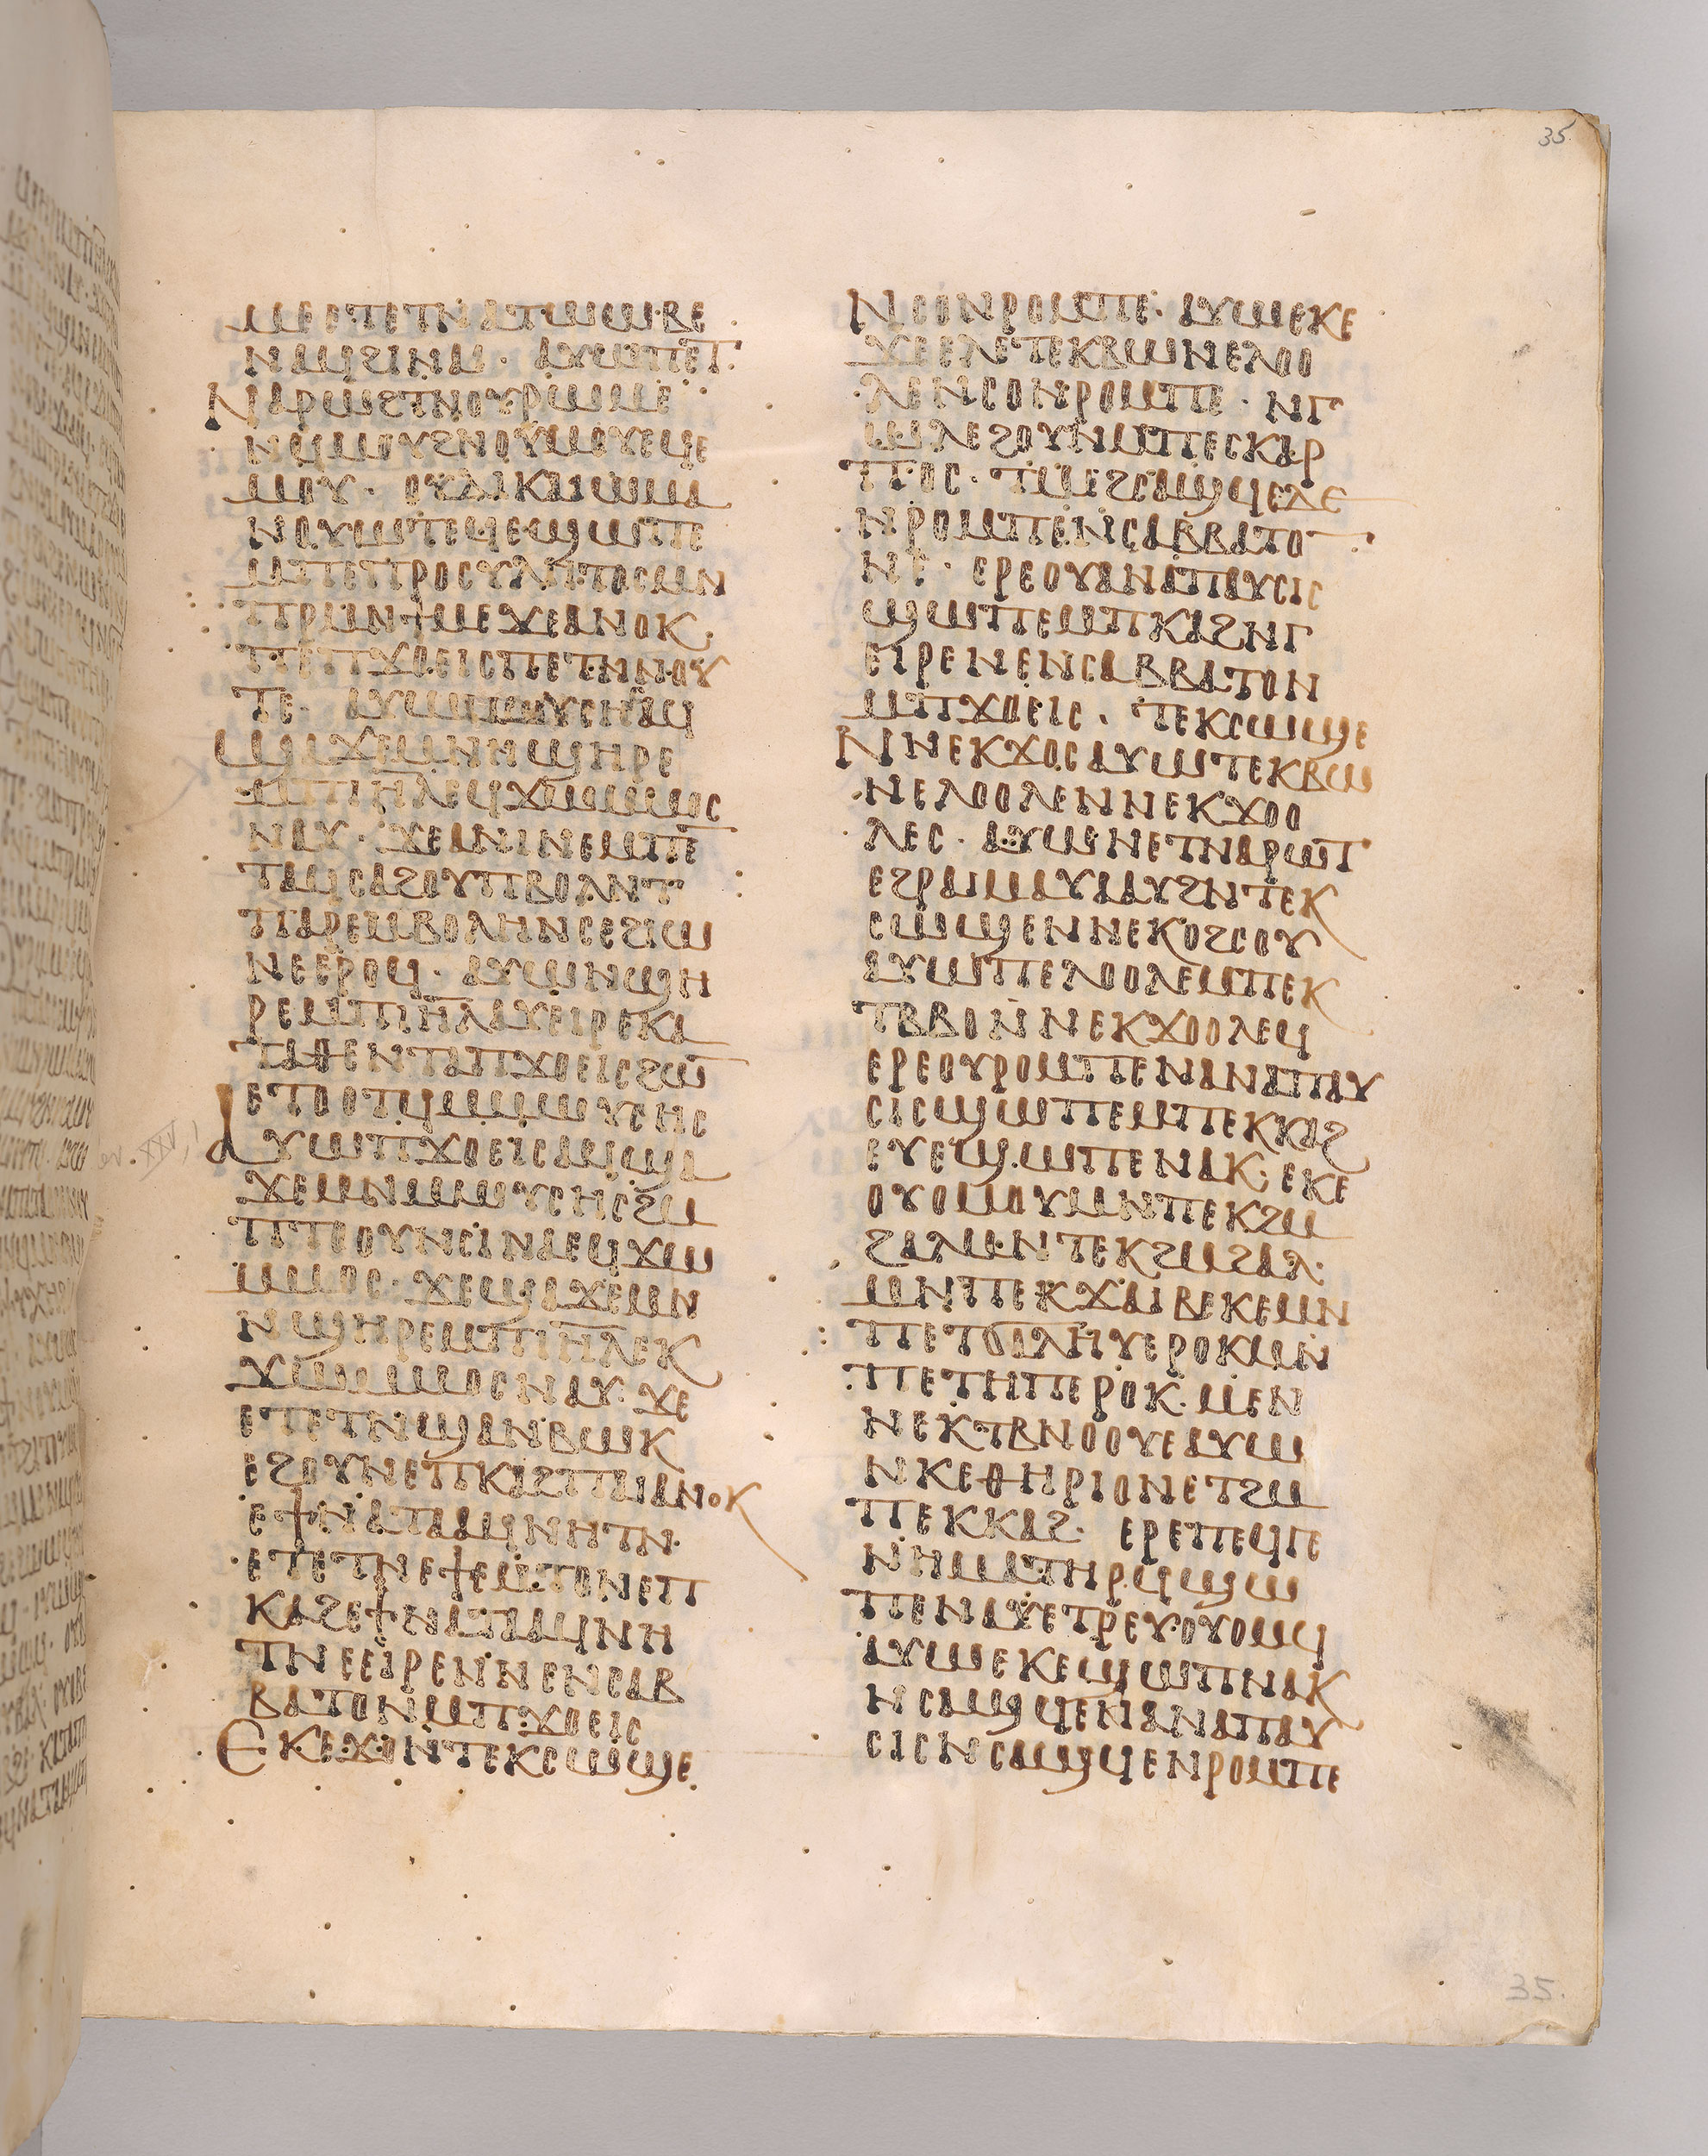 35
ⲙⲉⲟ·ⲡⲉⲧⲛⲁⲧⲱⲱⲃⲉ
ⲛⲁϥϩⲓⲛⲁⲓ· ⲁⲩⲱⲡⲉⲧ
ⲛⲁⲣⲱϩⲧⲛⲟⲩⲣⲱⲙⲉ
ⲛϥⲙⲟⲩϩⲛⲟⲩⲙⲟⲩⲉϥⲉ
ⲙⲟⲩ· ⲟⲩⲇⲓⲕⲁⲓⲱⲙⲁ
ⲛⲟⲩⲱⲧⲉϥⲉϣⲱⲡⲉ
ⲙⲡⲉⲡⲣⲟⲥⲩⲗⲏⲧⲟⲥⲙⲛ
ⲡⲣⲙⲛϯⲙⲉϫⲉⲁⲛⲟⲕ
ⲡⲉⲡϫⲟⲉⲓⲥⲡⲉⲧⲛⲛⲟⲩ
ⲧⲉ· ⲁⲩⲱⲙⲱⲩⲥⲏⲥⲁϥ
ϣⲁϫⲉⲙⲛⲛϣⲏⲣⲉ
ⲙⲡⲓⲏⲗⲉϥϫⲱⲙⲙⲟⲥ
ⲛⲁⲩ· ϫⲉⲁⲛⲓⲛⲉⲙⲡⲉ
ⲧⲁϥⲥⲁϩⲟⲩⲡⲃⲟⲗⲛⲧ
ⲡⲁⲣⲉⲙⲃⲟⲗⲏⲛⲥⲉϩⲓⲱ
ⲛⲉⲉⲣⲟϥ· ⲁⲩⲱⲛϣⲏ
ⲣⲉⲙⲡⲓⲏⲗⲁⲩⲉⲓⲣⲉⲕⲁ
ⲧⲁⲑⲉⲛⲧⲁⲡϫⲟⲉⲓⲥϩⲱ
ⲉⲧⲟⲟⲧϥⲙⲙⲱⲩⲥⲏⲥ
ⲁⲩⲱⲡϫⲟⲉⲓⲥⲁϥϣⲁ
ϫⲉⲙⲛⲙⲱⲩⲥⲏⲥϩⲙ
ⲡⲧⲟⲟⲩⲛⲥⲓⲛⲁⲉϥϫⲱ
ⲙⲙⲟⲥ· ϫⲉϣⲁϫⲉⲙⲛ
ⲛϣⲏⲣⲉⲙⲡⲓⲏⲗⲉⲕ
ϫⲱⲙⲙⲟⲥⲛⲁⲩ· ϫⲉ
ⲉⲧⲉⲧⲛϣⲁⲛⲃⲱⲕ
ⲉϩⲟⲩⲛⲉⲡⲕⲁϩⲡⲁⲓⲁⲛⲟⲕ
ⲉϯⲛⲁⲧⲁⲁϥⲛⲏⲧⲛ·
ⲉⲧⲉⲧⲛⲉϯⲉⲙⲧⲟⲛⲉⲡ
ⲕⲁϩⲉϯⲛⲁⲧⲁⲁϥⲛⲏ
ⲧⲛⲉⲉⲓⲣⲉⲛⲛⲉⲛⲥⲁⲃ
ⲃⲁⲧⲟⲛⲙⲡϫⲟⲉⲓⲥ
ⲉⲕⲉϫⲟⲛⲧⲉⲕⲥⲱϣⲉ
ⲛⲥⲟⲛⲣⲟⲙⲡⲉ· ⲁⲩⲱⲉⲕⲉ
ϫⲉⲉⲗⲉⲧⲉⲕⲃⲱⲛⲉⲗⲟⲟ
ⲗⲉⲛⲥⲟⲛⲣⲟⲙⲡⲉ· ⲛⲅ
ⲱⲗⲉϩⲟⲩⲛⲙⲡⲉⲥⲕⲁⲣ
ⲡⲟⲥ· ⲧⲙⲉϩⲥⲁϣϥⲉⲇⲉ
ⲛⲣⲟⲙⲡⲉⲛⲥⲁⲃⲃⲁⲧⲟ
ⲛⲧⲉ· ⲉⲣⲉⲟⲩⲁⲛⲁⲡⲁⲩⲥⲓⲥ
ϣⲱⲡⲉⲙⲡⲕⲁϩⲛⲅ
ⲉⲓⲣⲉⲛⲉⲛⲥⲁⲃⲃⲁⲧⲟⲛ
ⲙⲡϫⲟⲉⲓⲥ· ⲧⲉⲕⲥⲱϣⲉ
ⲛⲛⲉⲕϫⲟⲥⲁⲩⲱⲧⲉⲕⲃⲱ
ⲛⲉⲗⲟⲟⲗⲉⲛⲛⲉⲕϫⲟⲟ
ⲗⲉⲥ· ⲁⲩⲱⲛⲉⲧⲛⲁⲣⲱⲧ
ⲉϩⲣⲁⲓⲙⲁⲩⲁⲁⲩϩⲛⲧⲉⲕ
ⲥⲱϣⲉⲛⲛⲉⲕⲟϩⲥⲟⲩ
ⲁⲩⲱⲡⲉⲗⲟⲟⲗⲉⲙⲡⲉⲕ
ⲧⲃⲃⲟⲛⲛⲉⲕϫⲟⲟⲗⲉϥ
ⲉⲣⲉⲟⲩⲣⲟⲙⲡⲉⲛⲁⲛⲁⲡⲁⲩ
ⲥⲓⲥϣⲱⲡⲉⲙⲡⲉⲕⲕⲁϩ
ⲉⲩⲉϣⲱⲡⲉⲛⲁⲕ· ⲉⲕⲉ
ⲟⲩⲟⲙⲟⲩⲙⲛⲡⲉⲕϩⲙ
ϩⲁⲗⲙⲛⲧⲉⲕϩⲙϩⲁⲗ·
ⲙⲛⲡⲉⲕϫⲁⲓⲃⲉⲕⲉⲙⲛ
ⲡⲉⲧϭⲁⲗⲏⲩⲉⲣⲟⲕⲙⲛ
ⲡⲉⲧⲏⲡⲉⲣⲟⲕ· ⲙⲉⲛ
ⲛⲉⲕⲧⲃⲛⲟⲟⲩⲉⲁⲩⲱ
ⲛⲕⲉⲑⲏⲣⲓⲟⲛⲉⲧϩⲙ
ⲡⲉⲕⲕⲁϩ· ⲉⲣⲉⲡⲉϥⲅⲉ
ⲛⲏⲙⲁⲧⲏⲣϥϣⲱ
ⲡⲉⲛⲁⲩⲉⲧⲣⲉⲩⲟⲩⲟⲙϥ
ⲁⲩⲱⲉⲕⲉϣⲱⲡⲛⲁⲕ
ⲛⲥⲁϣϥⲉⲛⲁⲛⲁⲡⲁⲩ
ⲥⲓⲥⲛⲥⲁϣϥⲉⲛⲣⲟⲙⲡⲉ
35.